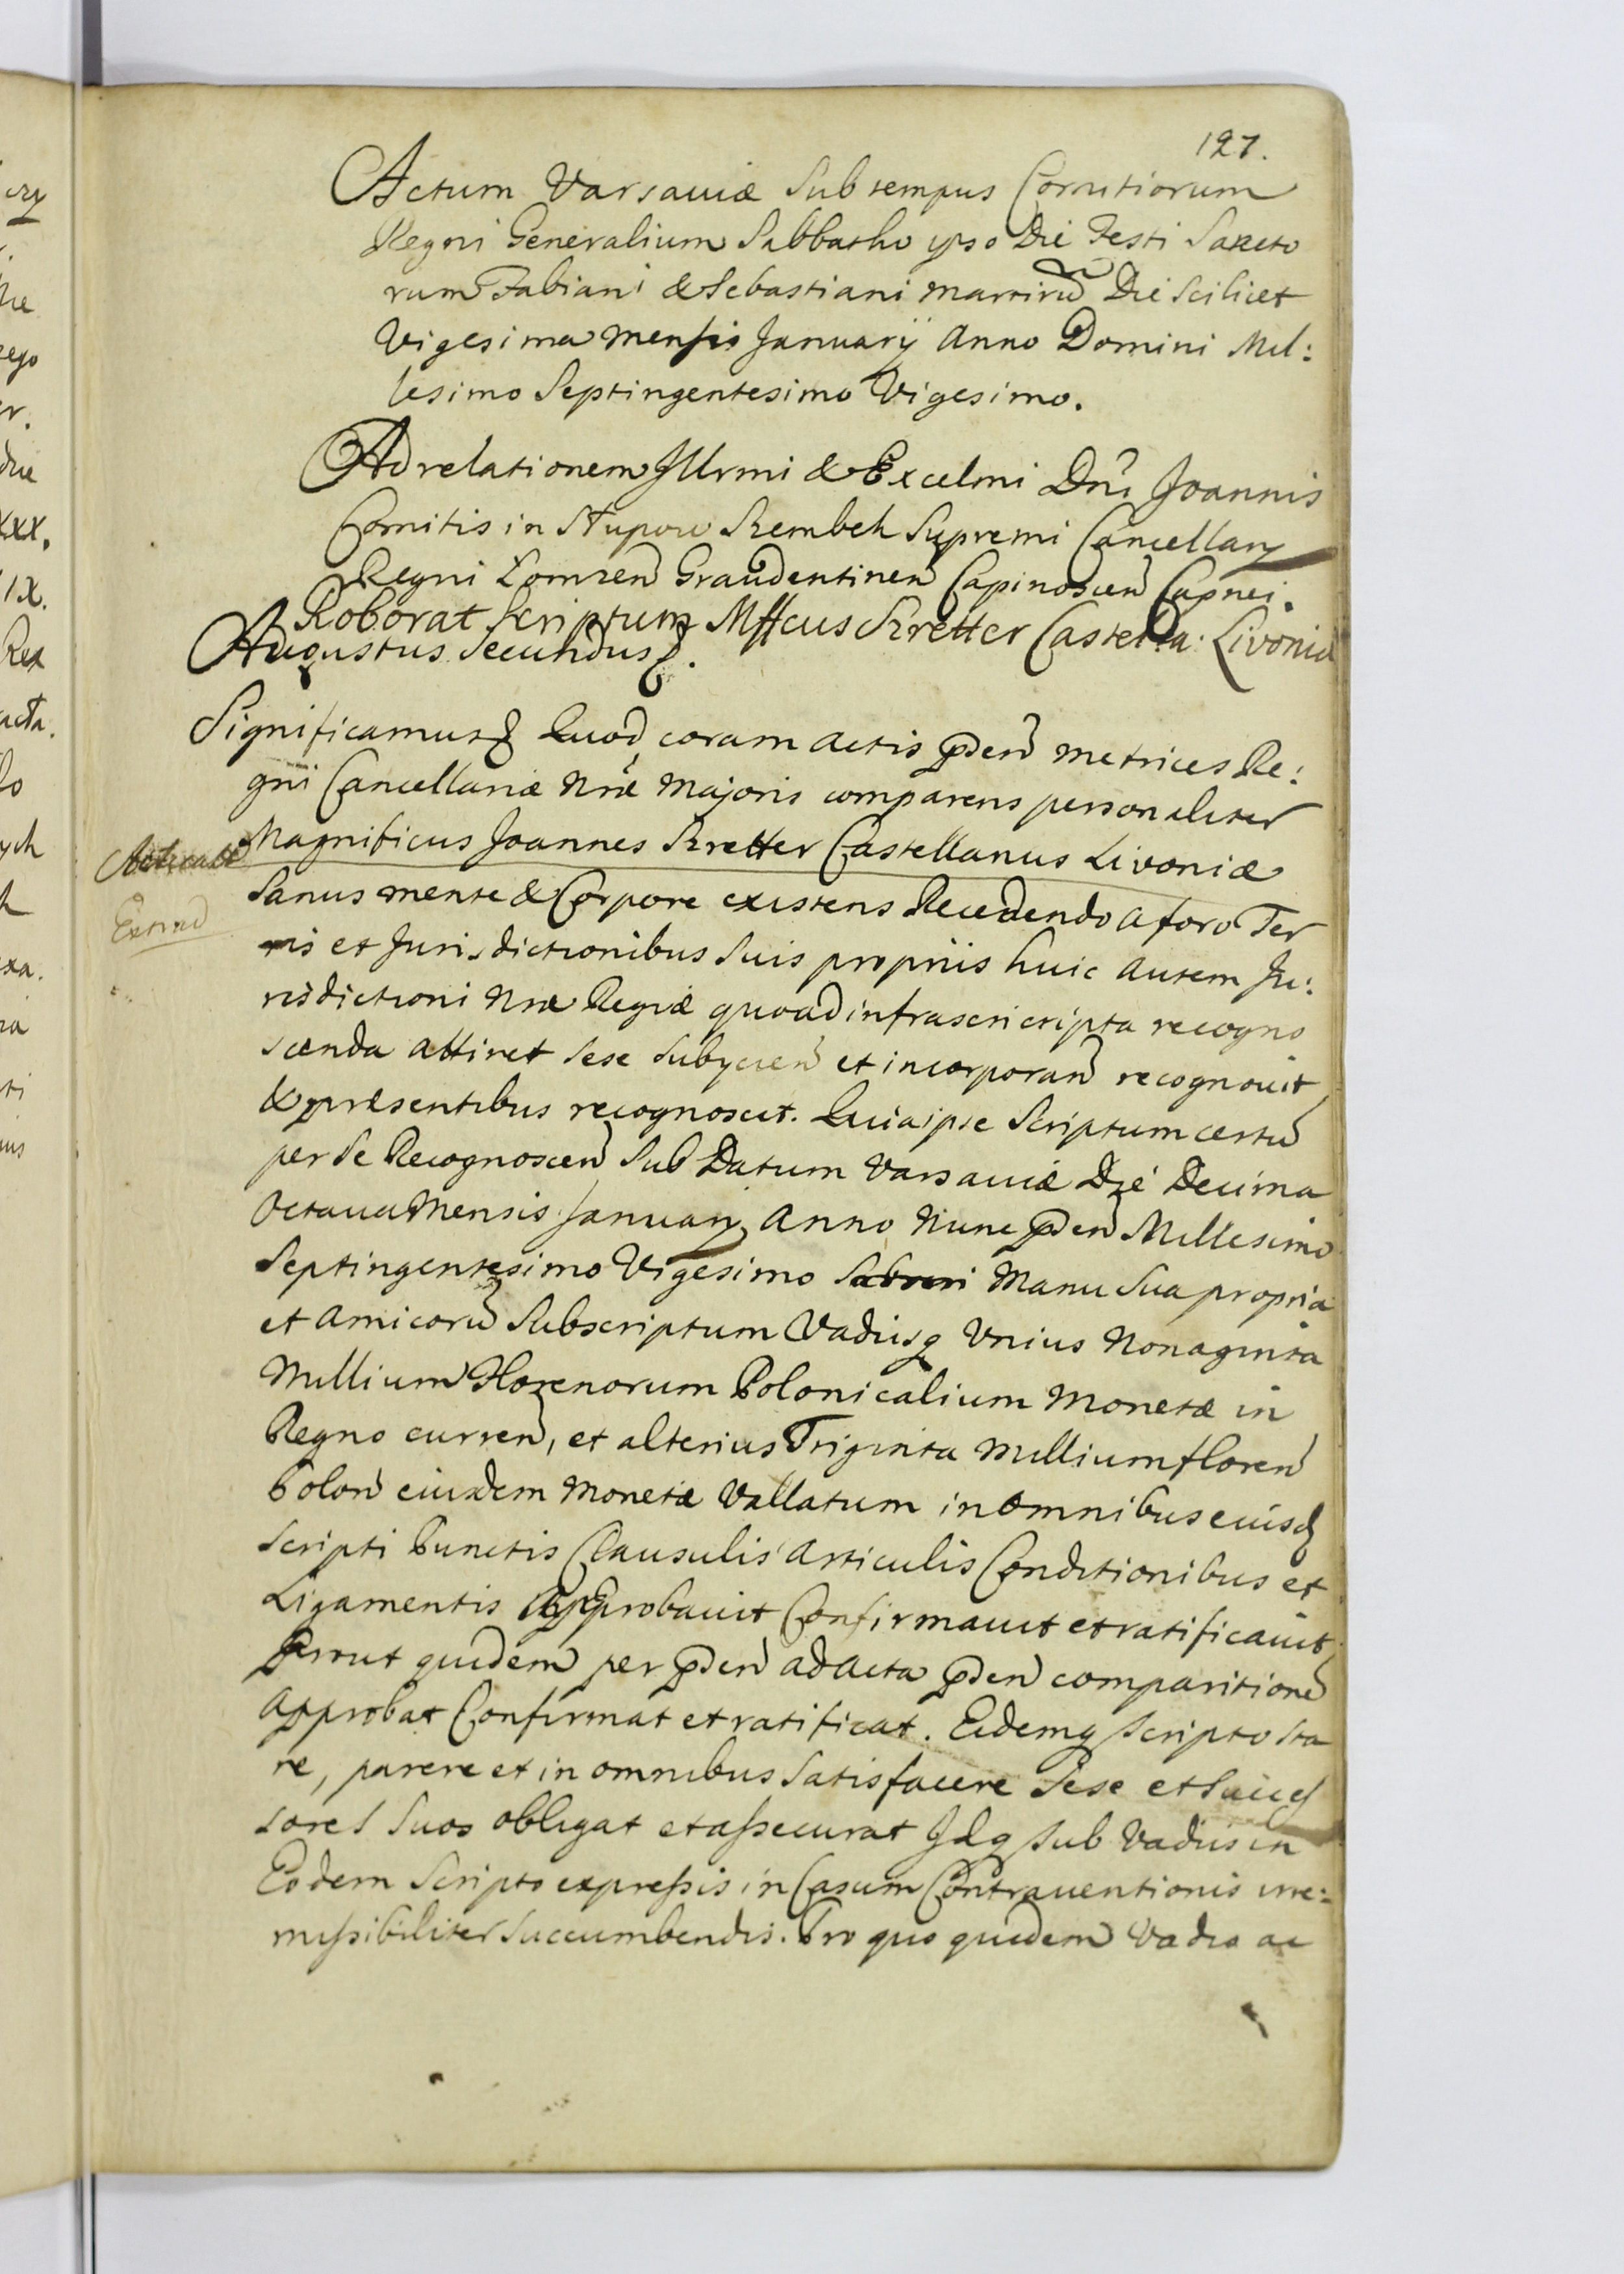 127.
Actum Varsaviæ Sub tempus Comitiorum
Regni Generalium Sabbatho ipso Die Festi Sancto
rum Fabiani & Sebastiani Martirũ Die Scilicet
Vigesima Mensis January Anno Domini Mil:
lesimo Septingentesimo Vigesimo.
Ad relationem Jllrmi & Excelmi Dni Joannis
Comitis in Słupow Szembek Supremi Cancellary
Regni Łomzen Graudentinen Capinoscien Capnei.
Roborat Scriptum Mffcus Szretter Castella: Livoniæ
Augustus Secundus &.
Significamus & Quod coram Actis pden Metrices Re:
gni Cancellariæ Nræ Majoris comparens personaliter
Magnificus Joannes Szretter Castellanus Livoniæ
Sanus mente & Corpore existens Recedendo a foro Ter
ris et Jurisdictionibus Suis propriis huic autem Ju:
risdictioni Nræ Regiæ quoad infrascricripta recogno
scenda attinet Sese Subycien et incorporan recognovit
& præsentibus recognoscit. Quia ipse Scriptum certũ
per Se Recognoscen Sub Datum Varsaviæ Die Decima
Octava Mensis January Anno Nunc pden Millesimo
Septingentesimo Vigesimo Manu Sua propria
et Amicorũ Subscriptum Vadiisq Unius Nonaginta
Millium Florenorum Polonicalium Monetæ in
Regno curren, et alterius Triginta Millium floren
Polon eiusdem Monetæ Vallatum in omnibus eiusd
Scripti Punctis Clausulis Articulis Conditionibus et
Ligamentis Approbavit Confirmavit et ratificavit
Prout quidem per pden ad Acta pden comparitionẽ
Approbat Confirmat et ratificat. Eidemq Scripto Sta
re, parere et in omnibus Satisfacere Sese et Succes
sores Suos obligat et assecurat Jdq sub Vadiis in
Eodem Scripto expressis in Casum Contraventionis irre:
missibiliter Succumbendis. Pro quo quidem Vadio ac